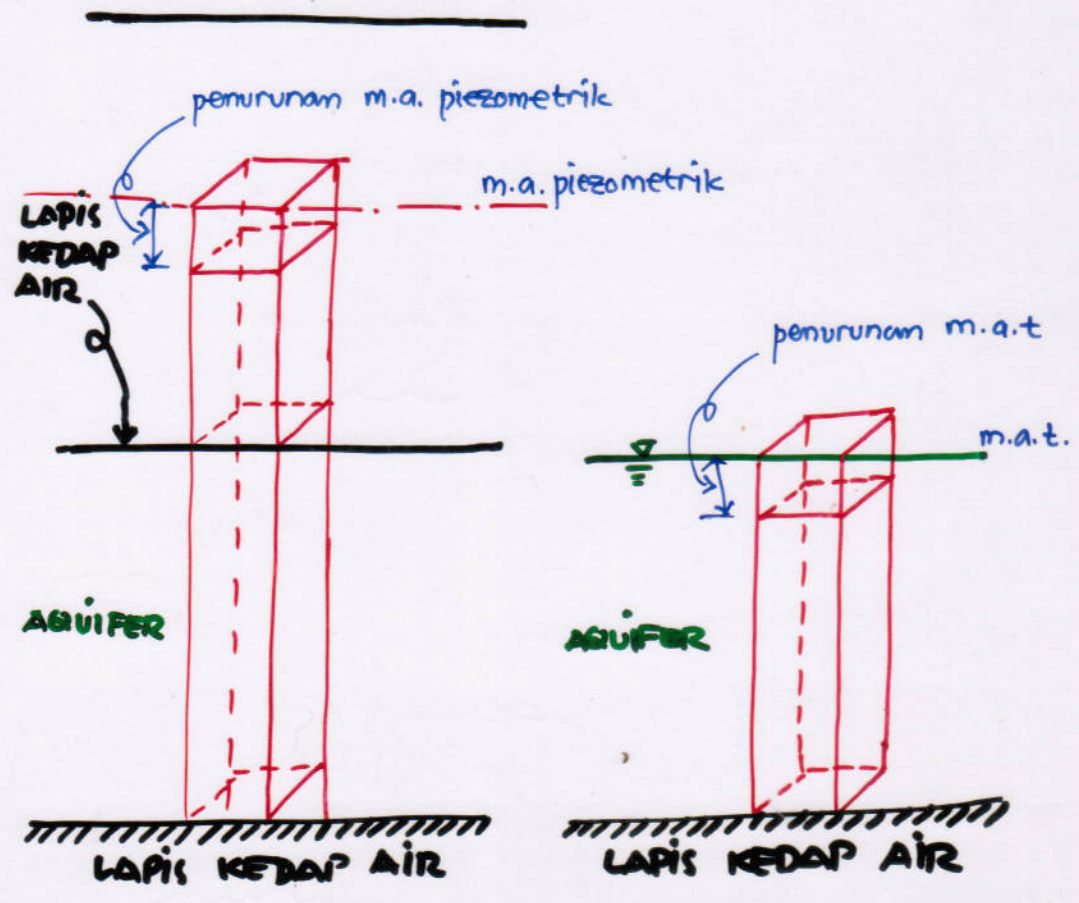 penurunan m.a. piezometrik
m.a. piezometrik
LAPIS
KEDAP
AIR
penurunan m.a.t
m.a.t.
AQUIFER
AQUIFER
LAPIS KEDAP AIR
LAPIS KEDAP AIR